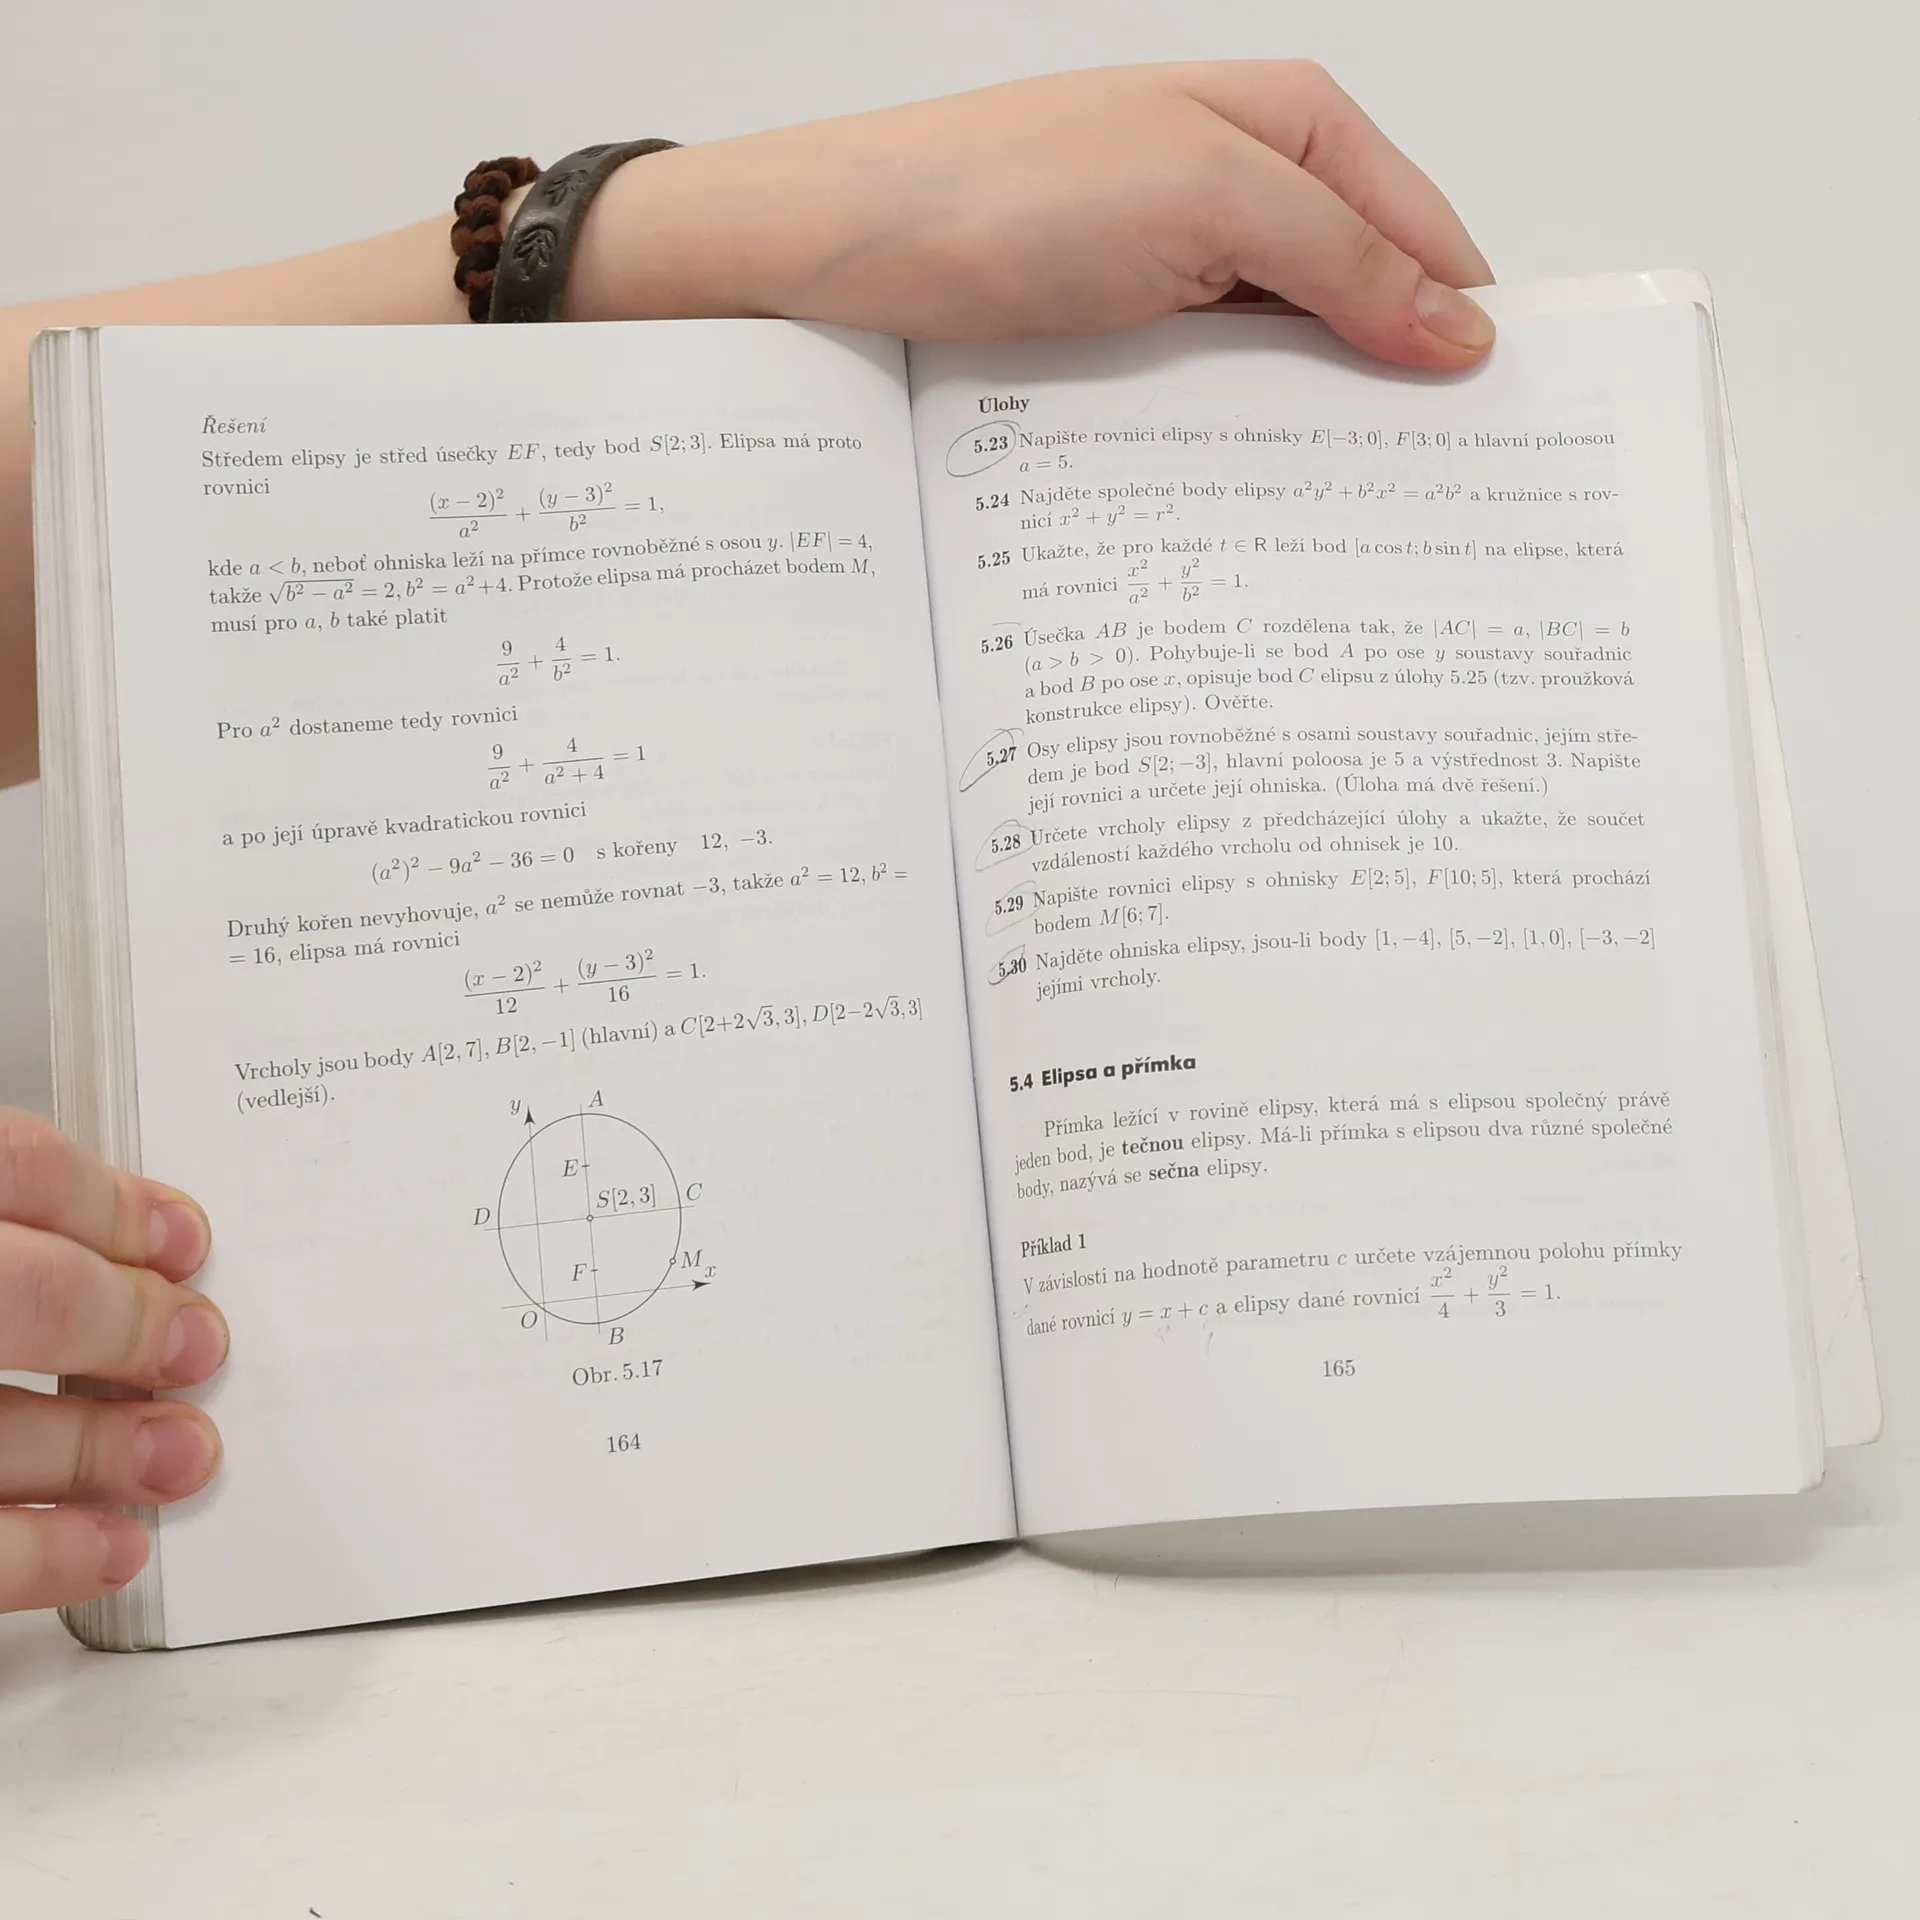 Řešení
Středem elipsy je střed úsečky EF, tedy bod S[2; 3]. Elipsa má proto
rovnici
(x − 2)²/a² + (y − 3)²/b² = 1,
kde a < b, neboť ohniska leží na přímce rovnoběžné s osou y. |EF| = 4,
takže √(b² − a²) = 2, b² = a²+4. Protože elipsa má procházet bodem M,
musí pro a, b také platit
9/a² + 4/b² = 1.
Pro a² dostaneme tedy rovnici
9/a² + 4/(a² + 4) = 1
a po její úpravě kvadratickou rovnici
(a²)² − 9a² − 36 = 0 s kořeny 12, −3.
Druhý kořen nevyhovuje, a² se nemůže rovnat −3, takže a² = 12, b² =
= 16, elipsa má rovnici
(x − 2)²/12 + (y − 3)²/16 = 1.
Vrcholy jsou body A[2, 7], B[2, −1] (hlavní) a C[2+2√3, 3], D[2−2√3, 3]
(vedlejší).
y
A
E
S[2, 3]
C
D
F
M
x
O
B
Obr. 5.17
164
Úlohy
5.23 Napište rovnici elipsy s ohnisky E[−3; 0], F[3; 0] a hlavní poloosou
a = 5.
5.24 Najděte společné body elipsy a²y² + b²x² = a²b² a kružnice s rov-
nicí x² + y² = r².
5.25 Ukažte, že pro každé t ∈ R leží bod [a cos t; b sin t] na elipse, která
má rovnici x²/a² + y²/b² = 1.
5.26 Úsečka AB je bodem C rozdělena tak, že |AC| = a, |BC| = b
(a > b > 0). Pohybuje-li se bod A po ose y soustavy souřadnic
a bod B po ose x, opisuje bod C elipsu z úlohy 5.25 (tzv. proužková
konstrukce elipsy). Ověřte.
5.27 Osy elipsy jsou rovnoběžné s osami soustavy souřadnic, jejím stře-
dem je bod S[2; −3], hlavní poloosa je 5 a výstřednost 3. Napište
její rovnici a určete její ohniska. (Úloha má dvě řešení.)
5.28 Určete vrcholy elipsy z předcházející úlohy a ukažte, že součet
vzdáleností každého vrcholu od ohnisek je 10.
5.29 Napište rovnici elipsy s ohnisky E[2; 5], F[10; 5], která prochází
bodem M[6; 7].
5.30 Najděte ohniska elipsy, jsou-li body [1, −4], [5, −2], [1, 0], [−3, −2]
jejími vrcholy.
5.4 Elipsa a přímka
Přímka ležící v rovině elipsy, která má s elipsou společný právě
jeden bod, je tečnou elipsy. Má-li přímka s elipsou dva různé společné
body, nazývá se sečna elipsy.
Příklad 1
V závislosti na hodnotě parametru c určete vzájemnou polohu přímky
dané rovnicí y = x + c a elipsy dané rovnicí x²/4 + y²/3 = 1.
165